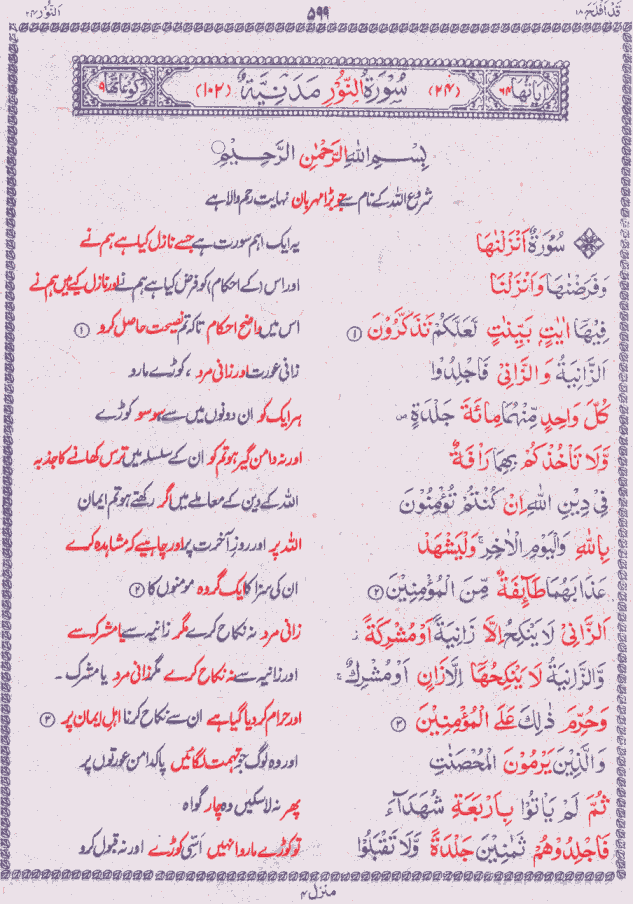 قَدْ اَفْلَحَ ١٨ ۵۹۹ اَلنُّوْر ۲۴
اٰيَاتُهَا ۶۴ (۲۴) سُوْرَةُ النُّوْرِ مَدَنِيَّةٌ (۱۰۲) رُكُوْعَاتُهَا ۹
بِسْمِ اللّٰهِ الرَّحْمٰنِ الرَّحِيْمِ
شروع اللہ کے نام سے جو بڑا مہربان نہایت رحم والا ہے
سُوْرَةٌ اَنْزَلْنٰهَا یہ ایک اہم سورت ہے جسے نازل کیا ہے ہم نے
وَفَرَضْنٰهَا وَاَنْزَلْنَا اور اس (کے احکام) کو فرض کیا ہے ہم نے اور نازل کیے ہیں ہم نے
فِيْهَآ اٰيٰتٍۭ بَيِّنٰتٍ لَّعَلَّكُمْ تَذَكَّرُوْنَ ① اس میں واضح احکام تاکہ تم نصیحت حاصل کرو ①
اَلزَّانِيَةُ وَالزَّانِيْ فَاجْلِدُوْا زانی عورت اور زانی مرد، کوڑے مارو
كُلَّ وَاحِدٍ مِّنْهُمَا مِائَةَ جَلْدَةٍ ص ہر ایک کو ان دونوں میں سے سو سو کوڑے
وَّلَا تَاْخُذْكُمْ بِهِمَا رَاْفَةٌ اور نہ دامن گیر ہو تم کو ان کے سلسلہ میں ترس کھانے کا جذبہ
فِيْ دِيْنِ اللّٰهِ اِنْ كُنْتُمْ تُؤْمِنُوْنَ اللہ کے دین کے معاملے میں اگر رکھتے ہو تم ایمان
بِاللّٰهِ وَالْيَوْمِ الْاٰخِرِ ۚ وَلْيَشْهَدْ اللہ پر اور روز آخرت پر اور چاہیے کہ مشاہدہ کرے
عَذَابَهُمَا طَآئِفَةٌ مِّنَ الْمُؤْمِنِيْنَ ② ان کی سزا کا ایک گروہ مومنوں کا ②
اَلزَّانِيْ لَا يَنْكِحُ اِلَّا زَانِيَةً اَوْ مُشْرِكَةً زانی مرد نہ نکاح کرے مگر زانیہ سے یا مشرکہ سے
وَّالزَّانِيَةُ لَا يَنْكِحُهَآ اِلَّا زَانٍ اَوْ مُشْرِكٌ ۚ اور زانیہ سے نہ نکاح کرے مگر زانی مرد یا مشرک۔
وَحُرِّمَ ذٰلِكَ عَلَى الْمُؤْمِنِيْنَ ③ اور حرام کر دیا گیا ہے ان سے نکاح کرنا اہل ایمان پر ③
وَالَّذِيْنَ يَرْمُوْنَ الْمُحْصَنٰتِ اور وہ لوگ جو تہمت لگائیں پاکدامن عورتوں پر
ثُمَّ لَمْ يَاْتُوْا بِاَرْبَعَةِ شُهَدَآءَ پھر نہ لا سکیں وہ چار گواہ
فَاجْلِدُوْهُمْ ثَمٰنِيْنَ جَلْدَةً وَّلَا تَقْبَلُوْا تو کوڑے مارو انہیں اسّی کوڑے اور نہ قبول کرو
منزل ۴